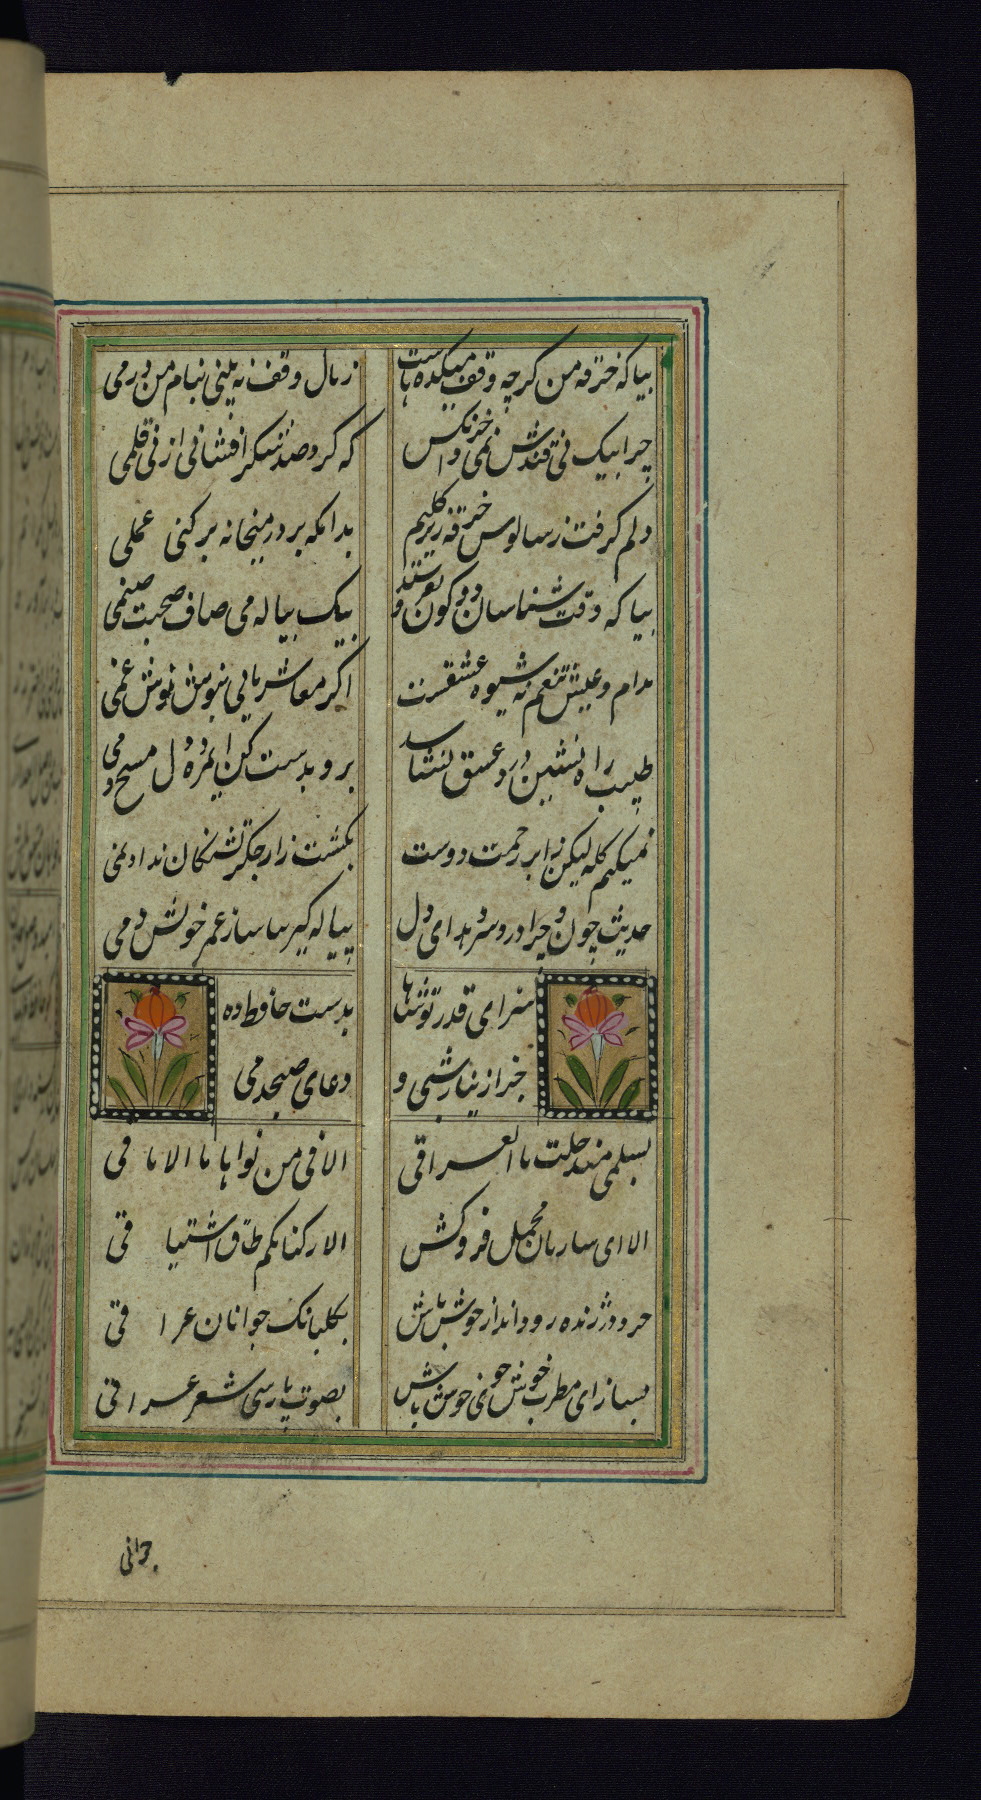 بیا که خرقه من کرچه وقف میکده هاست
زمال وقف نه بینی بنام من درمی
چرا بیک نی قندش نمی خرند آنکس
که کرد صد شکر افشانی از نی قلمی
دلم کرفت ز سالوس خرقه زیر کلیم
بدانکه بر در میخانه برکنی علمی
بیا که وقت شناسان دو کون بفروشند
بیک پیاله می صاف صحبت صنمی
مدام و عیش تنعم نه شیوه عشقست
اکر معاشر مائی بنوش نوش غمی
طبیب راه نشین درد عشق نشناسد
برو بدست کن ای مرده دل مسیح دمی
نمیکنم کله لیکن ز ابر رحمت دوست
بکشت زار جکر تشنکان نداد نمی
حدیث چون و چرا درد سر دهد ای دل
پیاله کیر بیاساز عمر خویش دمی
سزای قدر تو شاها
بدست حافظ ده
جز از نیاز شبی و
دعای صبحدمی
بسلمی منذ حلت بالعراقی
الاقی من نواها ما الاقی
الا ای ساربان محمل فروکش
الا رکبانکم طال اشتیاقی
خرد در زنده رود انداز خوش باش
بکلبانک جوانان عراقی
بساز ای مطرب خوش خوی خوش باش
بصوت پارسی شعر عراقی
جوانی